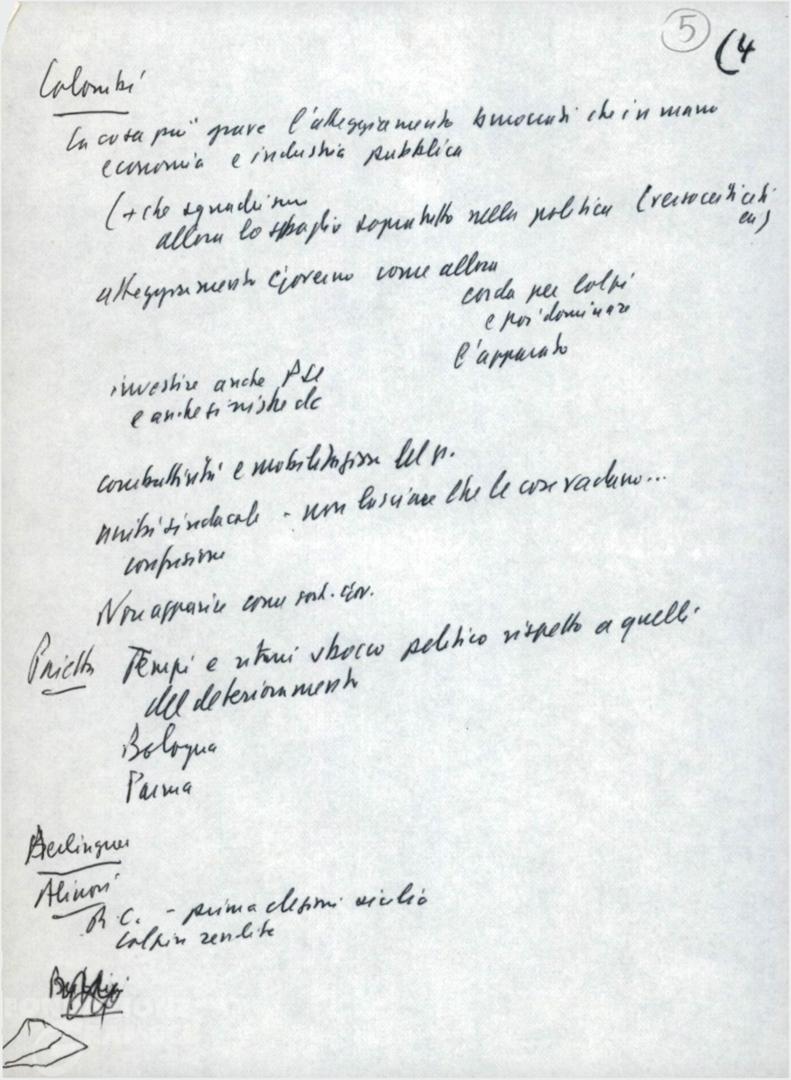 5 (4
Colombi
La cosa più grave l'atteggiamento burocrati che in mano
economia e industria pubblica
(+ che squadrismo
allora lo sbaglio sopratutto nella politica (
atteggiamento governo come allora
corda per colpi
e poi dominare
l'apparato
investire anche PSI
e anche sinistre dc
combattività e mobilitazione del p.
unità sindacale - non lasciare che le cose vadano...
confusione
Non apparire come sost. gov.
Pajetta Tempi e ritmi sbocco politico rispetto a quelli
del deterioramento
Bologna
Parma
Berlinguer
Alinovi
R.C. - prima elezioni sicilia
colpire rendite